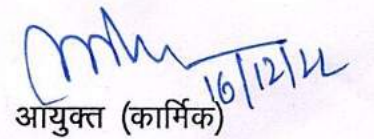 16/12/22
आयुक्त (कार्मिक)